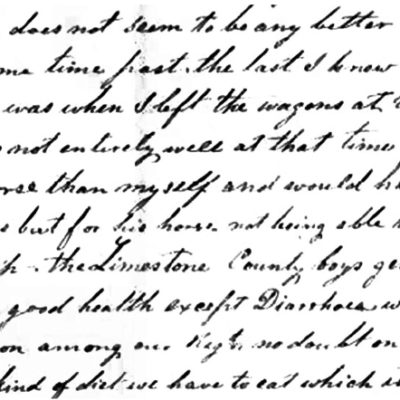 does not seem to be any better
me time past. the last I know
was when I left the wagons at
not entirely well at that time
rse than myself and would h
s but for his horse not being able
the Limestone County boys ge
good health except Diarrhoea w
on among our Regt. no doubt on
kind of diet we have to eat which i